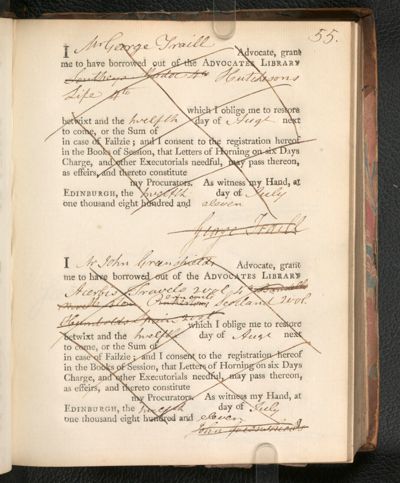 55.
I Mr George Traill Advocate, grant
me to have borrowed out of the ADVOCATES LIBRARY
4to Hutchesons
Life 4to
which I oblige me to restore
betwixt and the twelfth day of Augt next
to come, or the Sum of
in case of Failzie; and I consent to the registration hereof
in the Books of Session, that Letters of Horning on six Days
Charge, and other Executorials needful, may pass thereon,
as effeirs, and thereto constitute
my Procurators. As witness my Hand, at
EDINBURGH, the twelfth day of July
one thousand eight hundred and eleven
George Traill
I Mr John Advocate, grant
me to have borrowed out of the ADVOCATES LIBRARY
Travels 2 vol 4
Scotland 2 vol.
which I oblige me to restore
betwixt and the twelfth day of Augt next
to come, or the Sum of
in case of Failzie; and I consent to the registration hereof
in the Books of Session, that Letters of Horning on six Days
Charge, and other Executorials needful, may pass thereon,
as effeirs, and thereto constitute
my Procurators. As witness my Hand, at
EDINBURGH, the twelfth day of July
one thousand eight hundred and eleven
John